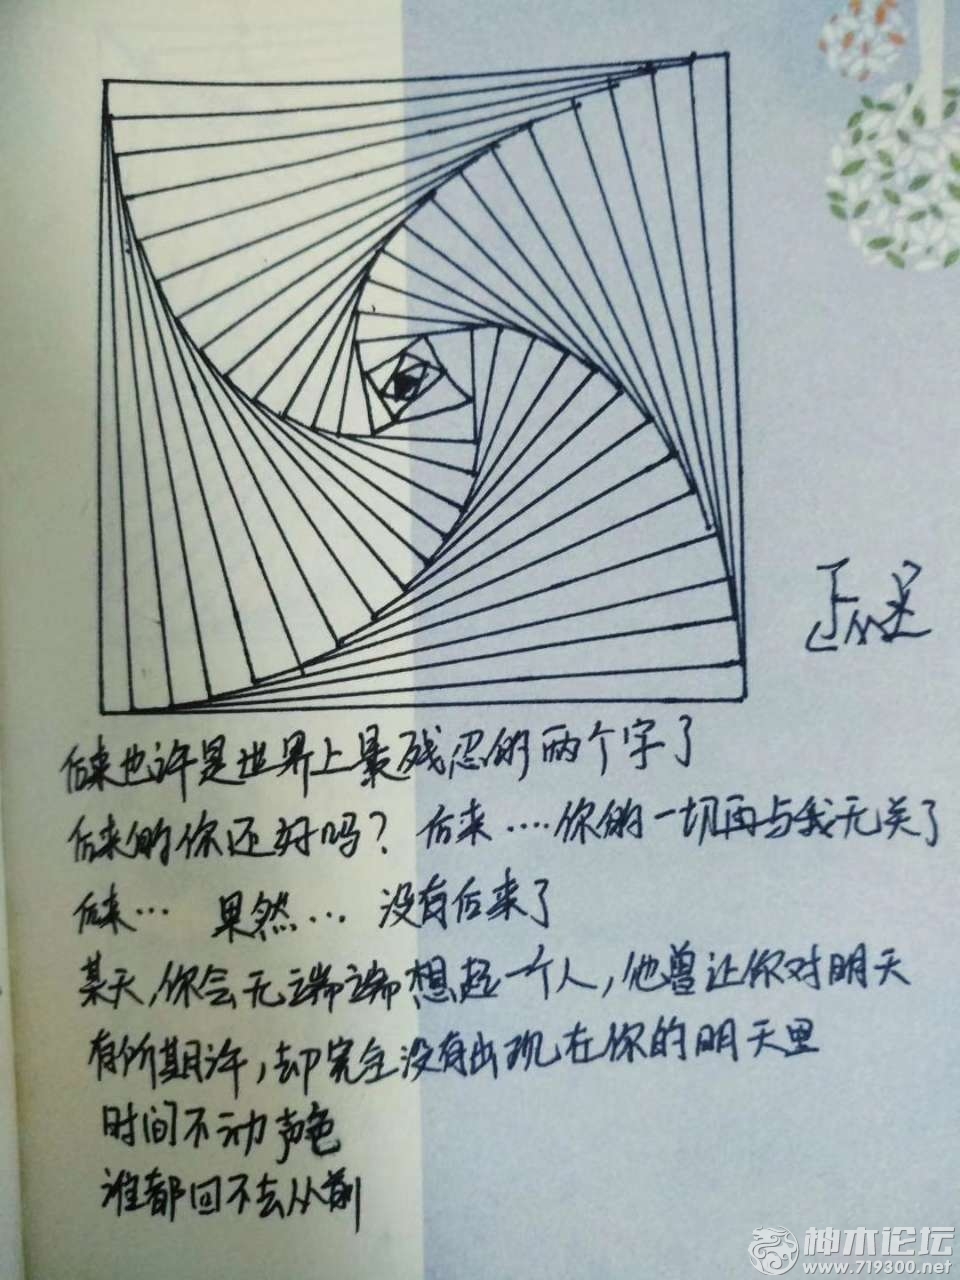 后来也许是世界上最残忍的两个字了
后来的你还好吗？后来....你的一切再与我无关了
后来... 果然... 没有后来了
某天，你会无端端想起一个人，他曾让你对明天
有所期许，却完全没有出现在你的明天里
时间不动声色
谁都回不去从前
神木论坛
www.719300.net